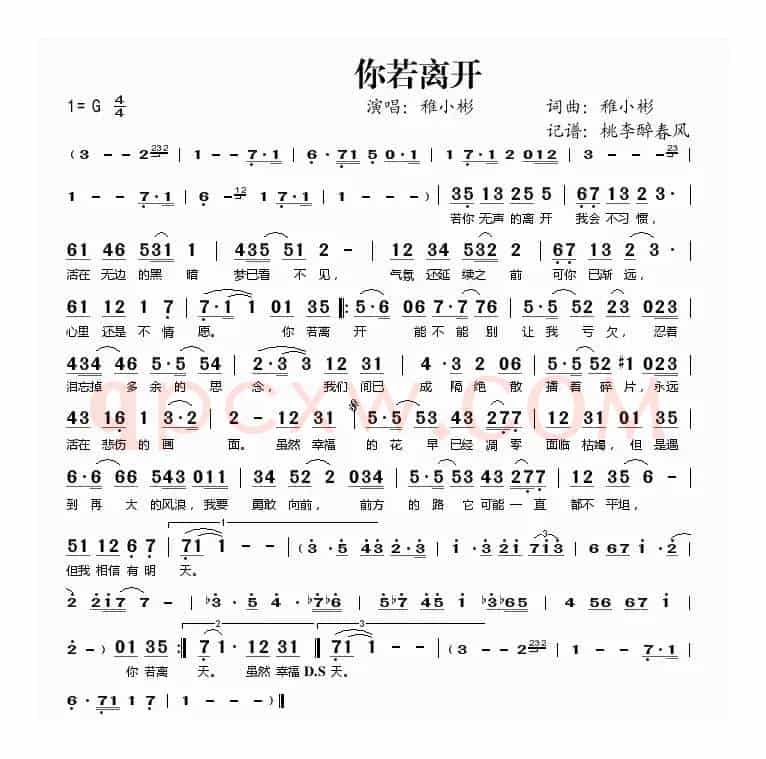 你若离开
1= G 4/4 演唱：稚小彬 词曲：稚小彬
记谱：桃李醉春风
( 3 - - 2 232 | 1 - - 7·1 | 6·71 5 0·1 | 1 7·1 2 012 | 2 - - 232 |
1 - - 7·1 | 6 - 12 1 7·1 | 1 - - - ) | 35 13 25 5 | 67 13 23· |
若你 无声 的离 开 我会 不习 惯，
61 46 531 1 | 435 51 2 - | 12 34 532 2 | 67 13 23· |
活在 无边 的黑 暗 梦已看 不 见， 气氛 还延 续之 前 可你 已渐 远，
61 12 1 7 | 7·1 1 01 35 |: 5·6 06 7·7 76 | 5·5 52 23 023 |
心里 还是 不 情 愿。 你 若离 开 能 不能 别 让 我 亏 欠，忍着
434 46 5·5 54 | 2·3 3 12 31 | 4·3 2 06 | 5·5 52 #1 023 |
泪忘掉 多 余 的 思 念， 我们 间已 成 隔 绝 散 播 着 碎 片，永远
43 16 1 3·2 | 2 - 12 31 | 5·5 53 43 277 | 12 31 01 35 |
活在 悲伤 的 画 面。虽然 幸福 的 花 早 已经 凋 零 面临 枯竭， 但 是遇
6·6 66 543 011 | 34 52 2 034 | 5·5 53 43 277 | 12 35 6 - |
到 再 大 的 风浪，我要 勇敢 向前， 前方 的 路 它 可能 一 直 都不 平坦，
51 12 6 7 | 71 1 - - | (3·5 43 2·2 | 1·3 21 713 | 6 671 1·2 |
但我 相信 有 明 天。
2 217 7 - | b3·5 4·b7b6 | b5b7 45 1 b3b65 | 4 56 67 1 |
2 - ) 01 35 :| 71· 12 31 | 71 1 - - | (3 - - 2 232 |
你 若离 天。 虽然 幸福 D.S 天。
6·71 1 7 | 1 - - - ) ‖
qpcxw.com